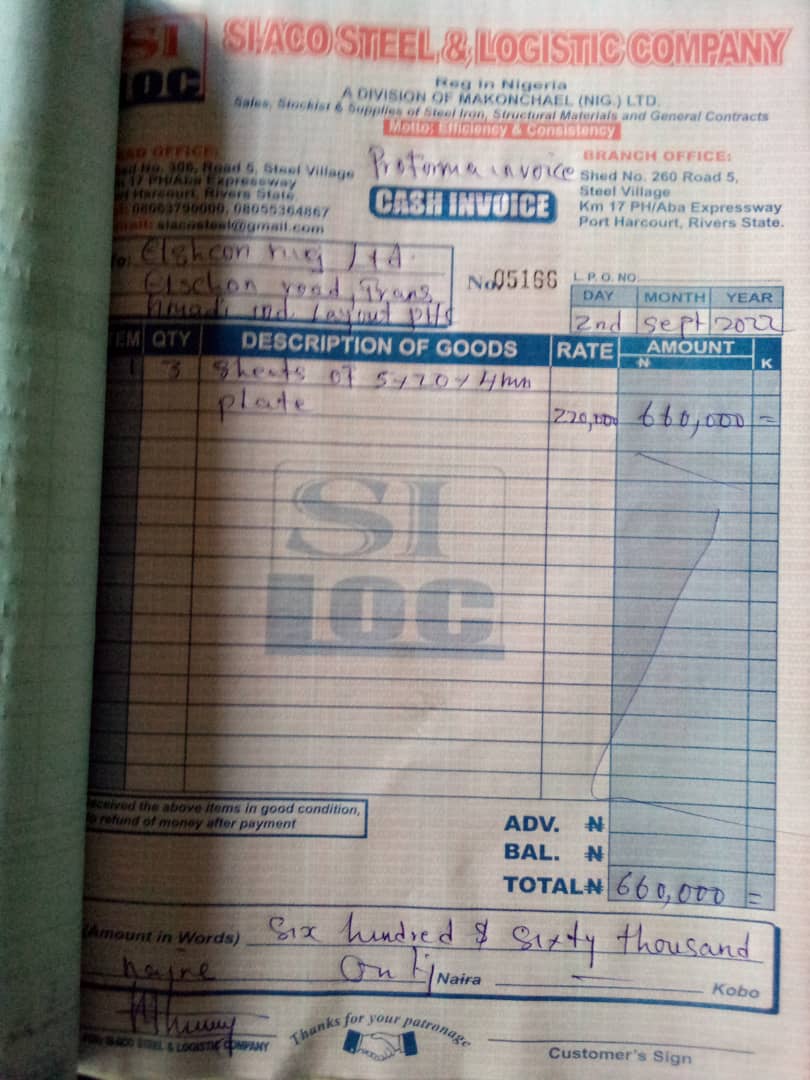 SI
LOC
SIACO STEEL & LOGISTIC COMPANY
Reg in Nigeria
A DIVISION OF MAKONCHAEL (NIG.) LTD.
Sales, Stockist & Supplies of Steel Iron, Structural Materials and General Contracts
Motto: Efficiency & Consistency
OFFICE:
No. 306, Road 5, Steel Village
17 PH/Aba Expressway
Harcourt, Rivers State
08063790000, 08055364867
siacosteel@gmail.com
Proforma invoice
CASH INVOICE
BRANCH OFFICE:
Shed No. 260 Road 5,
Steel Village
Km 17 PH/Aba Expressway
Port Harcourt, Rivers State.
Elshcon nig Ltd.
Elschon road, Trans
Amadi ind. Layout PH
No. 05166
L.P.O. NO.
DAY MONTH YEAR
2nd Sept 2022
EM QTY DESCRIPTION OF GOODS RATE AMOUNT
N K
1 3 Sheets of 5x20x4mm
plate 220,000 660,000 =
SI
LOC
eceived the above items in good condition,
refund of money after payment
ADV. N
BAL. N
TOTAL N 660,000 =
(Amount in Words) Six hundred & Sixty thousand
Only Naira Kobo
SIACO STEEL & LOGISTIC COMPANY
Thanks for your patronage
Customer's Sign